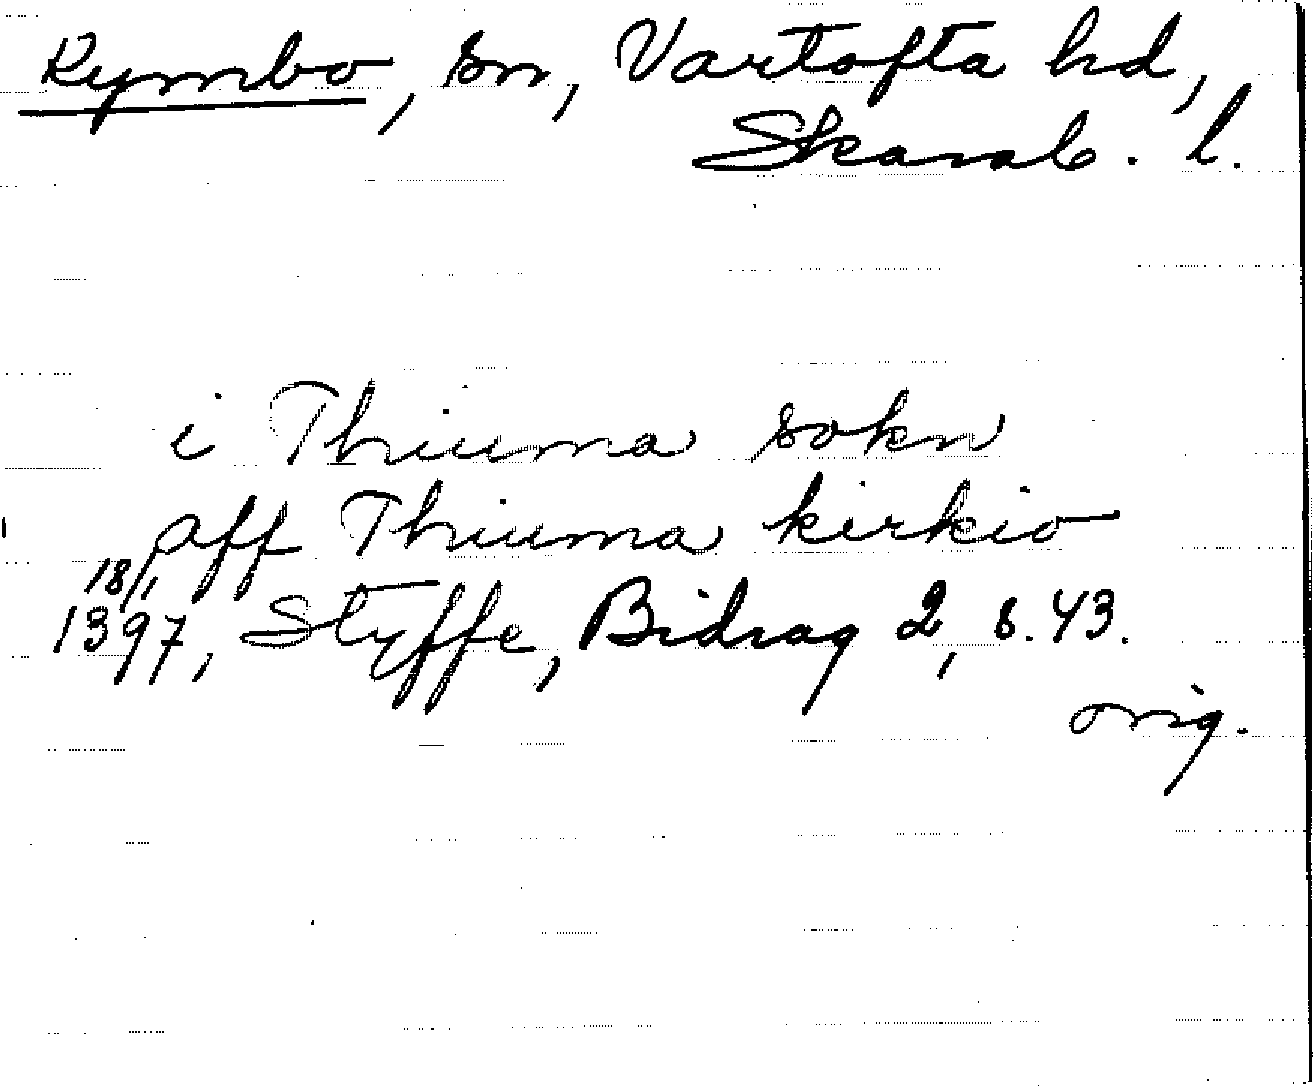 Kymbo, sn, Vartofta hd,
Skarab. l.
i Thiuma sokn
aff Thiuma kirkio
18/1 1397, Styffe, Bidrag 2, s. 43.
orig.